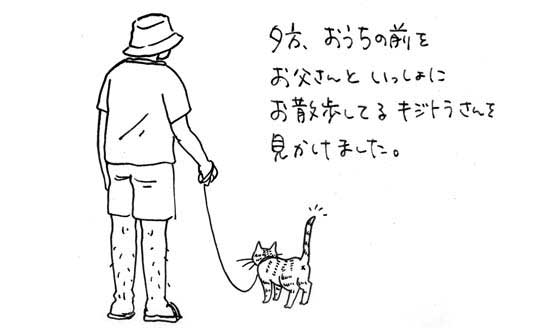 夕方、おうちの前を
お父さんといっしょに
お散歩してるキジトラさんを
見かけました。